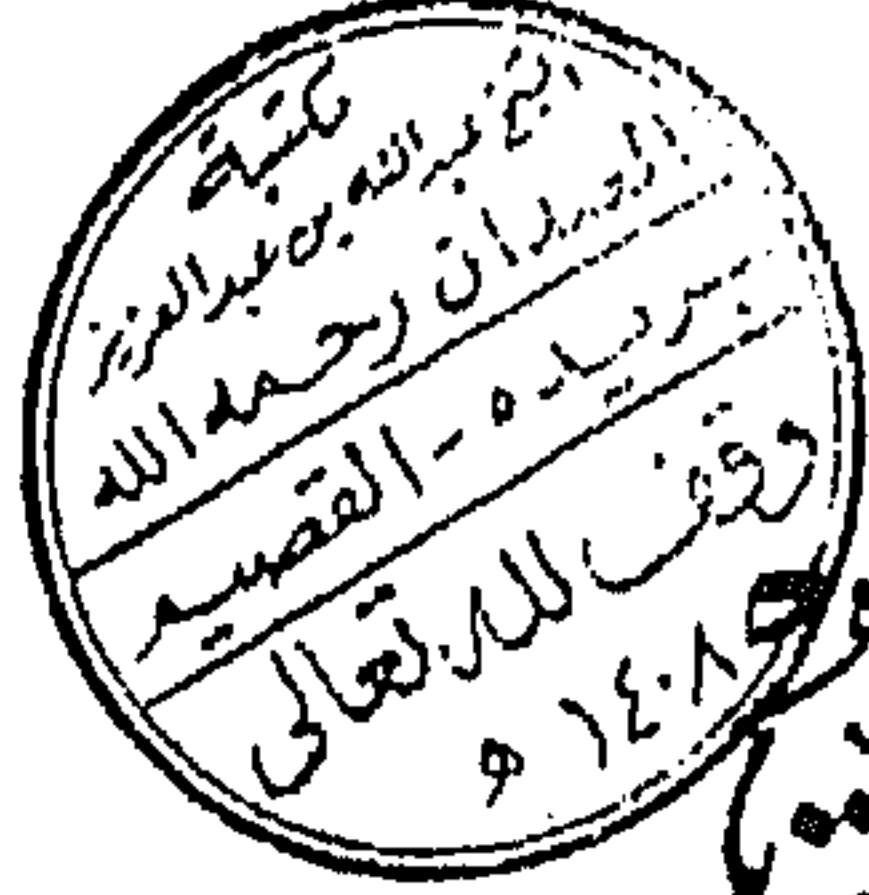 مكتبة
الشيخ عبدالله بن عبدالعزيز
رحمه الله
بريده - القصيم
وقف لله تعالى
١٤٠٨ هـ